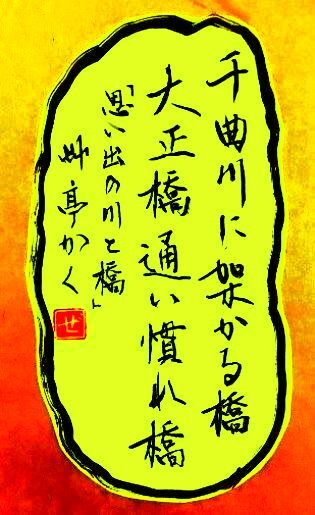 千曲川に架かる橋
大正橋通い慣れ橋
「思い出の川と橋」
艸亭かく
せ